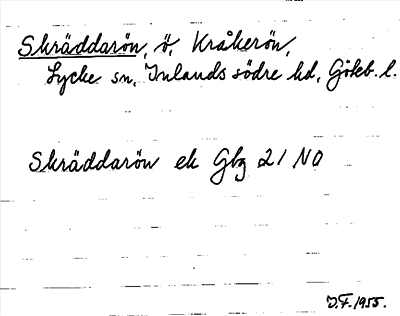 Skräddarön, ö, Kråkerön,
Lycke sn, Inlands södre hd, Göteb. l.
Skräddarön ek Gbg 21 NO
J.F. 1955.